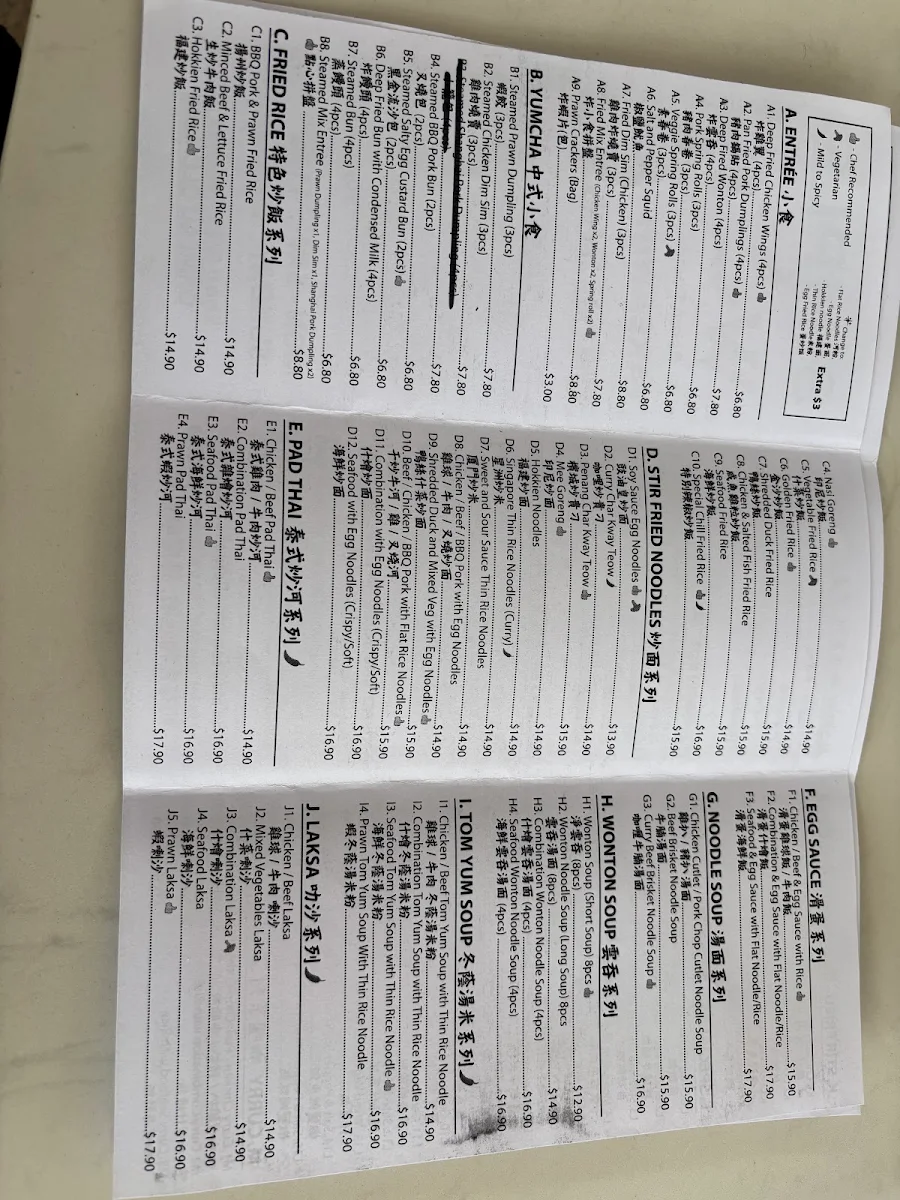 - Chef Recommended
- Vegetarian
- Mild to Spicy
Change to:
- Flat Rice Noodles 河粉
- Egg Noodle 蛋面
Hokkien noodle 福建面
- Thin Rice Noodle 米粉
- Egg Fried Rice 蛋炒飯
Extra $3
A. ENTRÉE 小食
A1. Deep Fried Chicken Wings (4pcs)
炸雞翼 (4pcs)...$6.80
A2. Pan Fried Pork Dumplings (4pcs)
豬肉鍋貼 (4pcs)...$7.80
A3. Deep Fired Wonton (4pcs)
炸雲吞 (4pcs)...$6.80
A4. Pork Spring Rolls (3pcs)
豬肉春卷 (3pcs)...$6.80
A5. Veggie Spring Rolls (3pcs)
素春卷 (3pcs)...$6.80
A6. Salt and Pepper Squid
椒鹽魷魚...$8.80
A7. Fried Dim Sim (Chicken) (3pcs)
雞肉炸燒賣 (3pcs)...$7.80
A8. Fried Mix Entree (Chicken Wing x2, Wonton x2, Spring roll x2)
炸小食拼盤...$8.80
A9. Prawn Crackers (Bag)
炸蝦片(包)...$3.00
B. YUMCHA 中式小食
B1. Steamed Prawn Dumpling (3pcs)
蝦餃 (3pcs)...$7.80
B2. Steamed Chicken Dim Sim (3pcs)
雞肉燒賣 (3pcs)...$7.80
B3. Steamed Shanghai Pork Dumpling (4pcs)
...$7.80
B4. Steamed BBQ Pork Bun (2pcs)
叉燒包 (2pcs)...$6.80
B5. Steamed Salty Egg Custard Bun (2pcs)
黑金流沙包 (2pcs)...$6.80
B6. Deep Fried Bun with Condensed Milk (4pcs)
炸饅頭 (4pcs)...$6.80
B7. Steamed Bun (4pcs)
蒸饅頭 (4pcs)...$6.80
B8. Steamed Mix Entree (Prawn Dumpling x1, Dim Sim x1, Shanghai Pork Dumpling x2)
點心拼盤...$8.80
C. FRIED RICE 特色炒飯系列
C1. BBQ Pork & Prawn Fried Rice
揚州炒飯...$14.90
C2. Minced Beef & Lettuce Fried Rice
生炒牛肉飯...$14.90
C3. Hokkien Fried Rice
福建炒飯...$14.90
C4. Nasi Goreng
印尼炒飯...$14.90
C5. Vegetable Fried Rice
什菜炒飯...$14.90
C6. Golden Fried Rice
金沙炒飯...$15.90
C7. Shredded Duck Fried Rice
鴨絲炒飯...$15.90
C8. Chicken & Salted Fish Fried Rice
咸魚雞粒炒飯...$15.90
C9. Seafood Fried Rice
海鮮炒飯...$16.90
C10. Special Chili Fried Rice
特別辣椒炒飯...$15.90
D. STIR FRIED NOODLES 炒面系列
D1. Soy Sauce Egg Noodles
豉油皇炒面...$13.90
D2. Curry Char Kway Teow
咖喱炒貴刁...$14.90
D3. Penang Char Kway Teow
檳城炒貴刁...$15.90
D4. Mee Goreng
印尼炒面...$14.90
D5. Hokkien Noodles
福建炒面...$14.90
D6. Singapore Thin Rice Noodles (Curry)
星洲炒米...$14.90
D7. Sweet and Sour Sauce Thin Rice Noodles
廈門炒米...$14.90
D8. Chicken / Beef / BBQ Pork with Egg Noodles
雞球 / 牛肉 / 叉燒炒面...$14.90
D9. Shredded Duck and Mixed Veg with Egg Noodles
鴨絲什菜炒面...$15.90
D10. Beef / Chicken / BBQ Pork with Flat Rice Noodles
干炒牛河 / 雞 / 叉燒河...$15.90
D11. Combination with Egg Noodles (Crispy/Soft)
什燴炒面...$16.90
D12. Seafood with Egg Noodles (Crispy/Soft)
海鮮炒面...$16.90
E. PAD THAI 泰式炒河系列
E1. Chicken / Beef Pad Thai
泰式雞肉 / 牛肉炒河...$14.90
E2. Combination Pad Thai
泰式雜燴炒河...$16.90
E3. Seafood Pad Thai
泰式海鮮炒河...$16.90
E4. Prawn Pad Thai
泰式蝦炒河...$17.90
F. EGG SAUCE 滑蛋系列
F1. Chicken / Beef & Egg Sauce with Rice
滑蛋雞球飯 / 牛肉飯...$15.90
F2. Combination & Egg Sauce with Flat Noodle/Rice
滑蛋什燴飯...$17.90
F3. Seafood & Egg Sauce with Flat Noodle/Rice
滑蛋海鮮飯...$17.90
G. NOODLE SOUP 湯面系列
G1. Chicken Cutlet / Pork Chop Cutlet Noodle Soup
雞扒 / 豬扒湯面...$15.90
G2. Beef Brisket Noodle Soup
牛腩湯面...$15.90
G3. Curry Beef Brisket Noodle Soup
咖喱牛腩湯面...$16.90
H. WONTON SOUP 雲吞系列
H1. Wonton Soup (Short Soup) 8pcs
淨雲吞 (8pcs)...$12.90
H2. Wonton Noodle Soup (Long Soup) 8pcs
雲吞湯面 (8pcs)...$14.90
H3. Combination Wonton Noodle Soup (4pcs)
什燴雲吞湯面 (4pcs)...$16.90
H4. Seafood Wonton Noodle Soup (4pcs)
海鮮雲吞湯面 (4pcs)...$16.90
I. TOM YUM SOUP 冬蔭湯米系列
I1. Chicken / Beef Tom Yum Soup with Thin Rice Noodle
雞球 / 牛肉 冬蔭湯米粉...$14.90
I2. Combination Tom Yum Soup with Thin Rice Noodle
什燴冬蔭湯米粉...$16.90
I3. Seafood Tom Yum Soup with Thin Rice Noodle
海鮮冬蔭湯米粉...$16.90
I4. Prawn Tom Yum Soup With Thin Rice Noodle
蝦冬蔭湯米粉...$17.90
J. LAKSA 叻沙系列
J1. Chicken / Beef Laksa
雞球 / 牛肉 喇沙...$14.90
J2. Mixed Vegetables Laksa
什菜喇沙...$14.90
J3. Combination Laksa
什燴喇沙...$16.90
J4. Seafood Laksa
海鮮喇沙...$16.90
J5. Prawn Laksa
蝦喇沙...$17.90